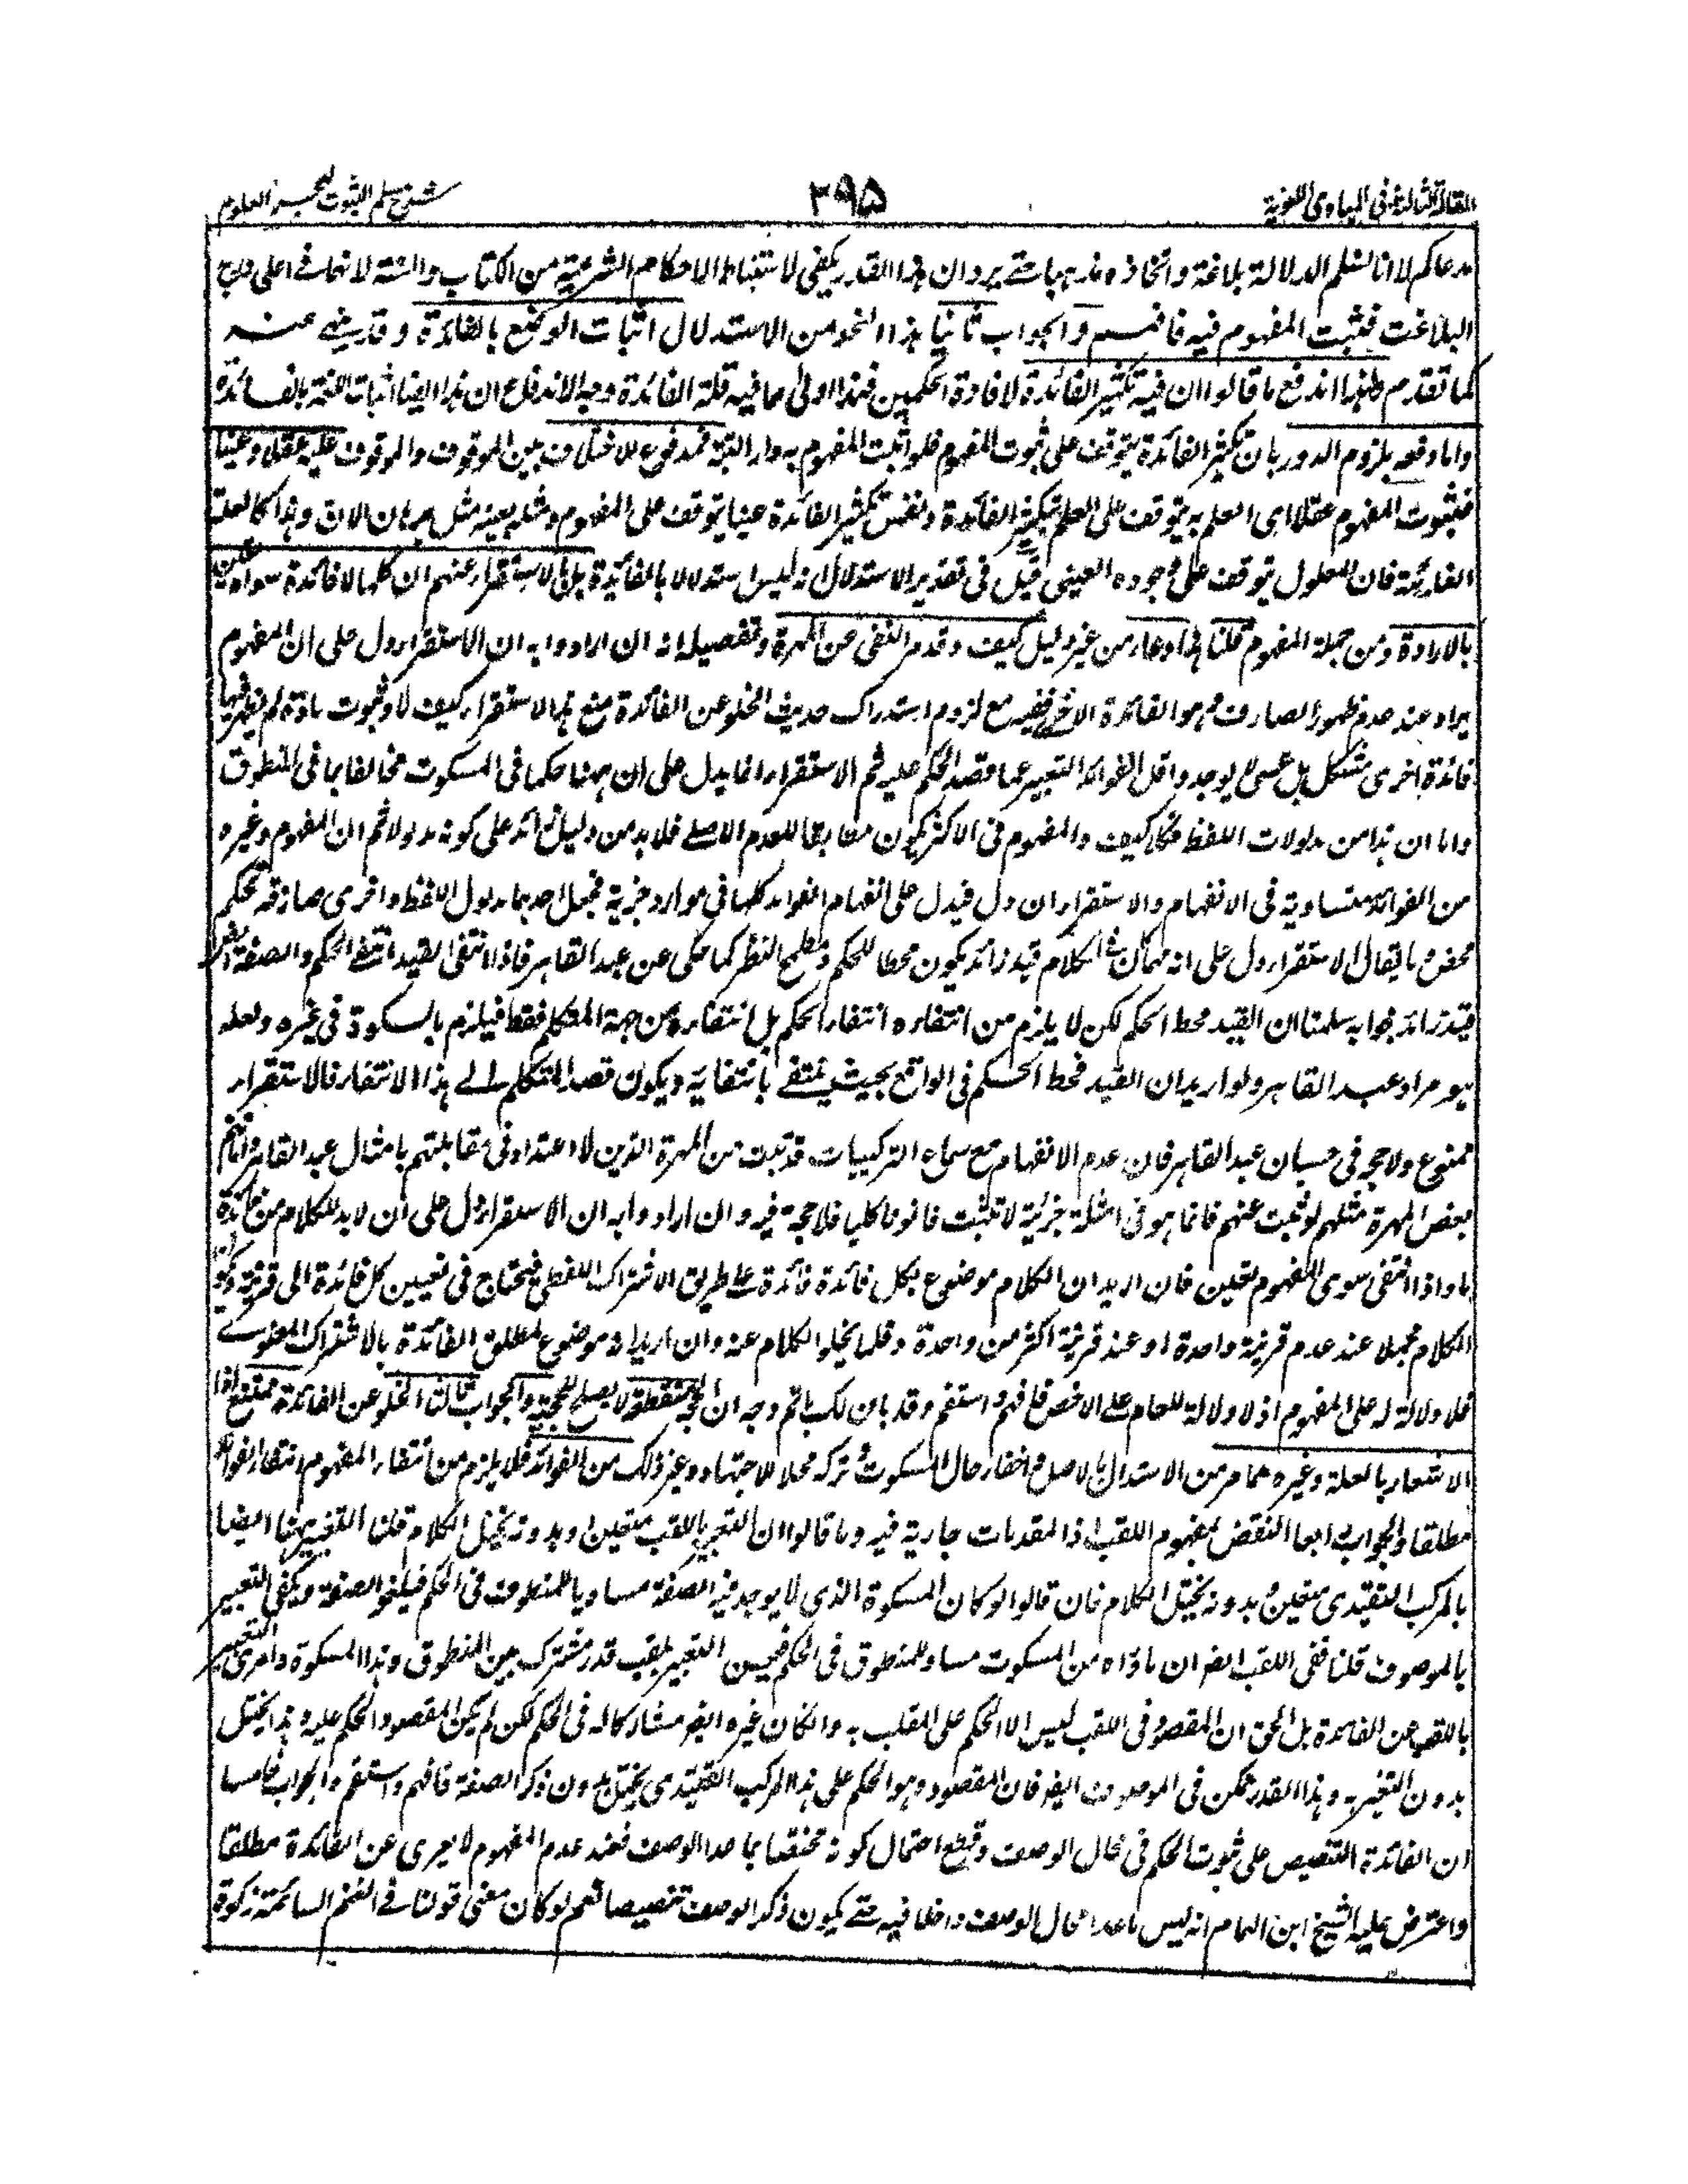 المقالة الثالثة فى المبادى اللغوية
٢٩٥
شرح مسلم الثبوت لبحر العلوم
مدعاكم لا انا لنسلم الدلالة بلاغة واتخاذه مذهبا حتے يرد ان هذا القدر يكفى لاستنباط الاحكام الشرعية من الكتاب والسنة لانهما فے اعلى درج
البلاغت فيثبت المفهوم فيه فافهم والجواب ثانيا هذا النحو من الاستدلال اثبات الوضع بالفائدة وقد نهے عنه
كما تقدم وبهذا اندفع ما قالوا ان فيه تكثير الفائدة لافادة الحكمين فهذا اولى مما فيه قلة الفائدة وجه الاندفاع ان هذا ايضا اثبات اللغة بالفائدة
واما دفعه بلزوم الدور بان تكثير الفائدة يتوقف على ثبوت المفهوم فلو اثبت المفهوم به دار البتة فمدفوع لاختلاف بين الموقوف والموقوف عليه عقلا وعينا
فثبوت المفهوم عقلا اى العلم به يتوقف على العلم بتكثير الفائدة ونفس تكثير الفائدة عينا يتوقف على المفهوم ومثله بعينه مثل برهان الان وهذا كالعلة
الغائية فان المعلول يتوقف على وجوده العينى قيل فى تقرير الاستدلال انه ليس استدلالا بالفائدة بل بالاستقرار عنهم ان كلما لا فائدة سواه
بالارادة ومن جملة المفهوم قلنا هذا ادعاء من غير دليل كيف وقد مر النفى عن المهرة وتفصيله انه ان ارادوا به ان الاستقرار دل على ان المفهوم
يراد عند عدم ظهور الصارف وهو الفائدة الاخرى ففيه مع لزوم استدراك حديث الخلو عن الفائدة منع هذا الاستقرار كيف لا وثبوت مادة لم يظهر فيها
فائدة اخرى مشكل بل عسى لا يوجد واقل الفوائد التعبير عما قصد الحكم عليه ثم الاستقرار انما يدل على ان ههنا حكما فى المسكوت مخالفا بما فى المنطوق
واما ان هذا من مدلولات اللفظ فكلا كيف والمفهوم فى الاكثر يكون مطابقا للعدم الاصلے فلا بد من دليل زائد على كونه مدلولا ثم ان المفهوم وغيره
من الفوائد متساوية فى الانفهام والاستقرار ان دل فيدل على انفهام الفوائد كلها فى موارد جزئية فجعل احدهما مدلول اللفظ واخرى صارفة تحكم
محض ما يقال الاستقرار دل على انه مهما كان فے الكلام قيد زائد يكون محطا للحكم ومطمح النظر كما حكى عن عبد القاهر فاذا انتفى القيد انتفے الحكم والصفة ايضا
قيد زائد فجوابه سلمنا ان القيد محط الحكم لكن لا يلزم من انتفاره انتفار الحكم بل انتفاره من جهة المتكلم فقط فيلزم بالسكوة فى غيره ولعله
هو مراد عبد القاهر ولو اريد ان القيد محط الحكم فى الواقع بحيث ينتفے بانتفايه ويكون قصد المتكلم الے هذا الانتفار فالاستقرار
ممنوع ولا حجة فى حسبان عبد القاهر فان عدم الانفهام مع سماع التركيبات قد ثبت من المهرة الذين لا اعتداد فى مقابلتهم بامثال عبد القاهر
بعض المهرة مثلهم لو ثبت عنهم فانما هو فى امثلة جزئية لا تثبت قانونا كليا فلا حجة فيه وان ارادوا به ان الاستقرار دل على ان لا بد للكلام من فائدة
ما واذا انتفى سوى المفهوم تعين فان اريد ان الكلام موضوع لكل فائدة فائدة علے طريق الاشتراك اللفظى فيحتاج فى تعيين كل فائدة الى قرينة ويكون
الكلام مجملا عند عدم قرينة واحدة او عند قرينة اكثر من واحدة وقلما يخلو الكلام عنه وان اريد انه موضوع لمطلق الفائدة بالاشتراك المعنوے
فلا دلالة له على المفهوم اذ لا دلالة للعام علے الاخص فافهم واستقم وقد بان لك باتم وجه ان الحجة لا يصلح للحجية والجواب ثالثا الخلو عن الفائدة ممتنع اذا
الاشعار بالعلة وغيره مما مر من الاستدلال بالاصل واخفار حال المسكوت وتركه محلا للاجتهاد وغير ذلك من الفوائد فلا يلزم من انتفار المفهوم انتفار الفوائد
مطلقا والجواب رابعا النقض بمفهوم اللقب اذ المقدمات جارية فيه وما قالوا ان التعبير باللقب متعين وبدونه يختل الكلام قلنا التعبير ههنا ايضا
بالمركب التقييدى متعين وبدونه يختل الكلام فان قالوا لو كان المسكوة الذى لا يوجد فيه الصفة مساويا للمنطوق فى الحكم فيلغو الصفة ويكفى التعبير
بالموصوف قلنا ففى اللقب ايضر ان ما وراه من المسكوت مساو للمنطوق فى الحكم فيحسن التعبير بلقب قدر مشترك بين المنطوق وهذا المسكوة وامرى التعبير
باللقب عن الفائدة بل الحق ان المقصود فى اللقب ليس الا الحكم على الملقب به وان كان غيره ايضر مشاركا له فى الحكم لكن لم يكن المقصود الحكم عليه وهذا يختل
بدون التعبير به وهذا القدر ممكن فى الموصوف ايضر فان المقصود وهو الحكم على هذا المركب التقييدى يختل بدون ذكر الصفة فافهم واستقم والجواب خامسا
ان الفائدة التنصيص على ثبوت الحكم فى محال الوصف وقطع احتمال كونه مختصا بما عدا الوصف فعند عدم المفهوم لا يعرى عن الفائدة مطلقا
واعترض عليه الشيخ ابن الهمام انه ليس ما عدا محال الوصف داخلا فيه حتے يكون ذكر الوصف تنصيصا نعم لو كان معنى قولنا فے الغنم السائمة زكوة